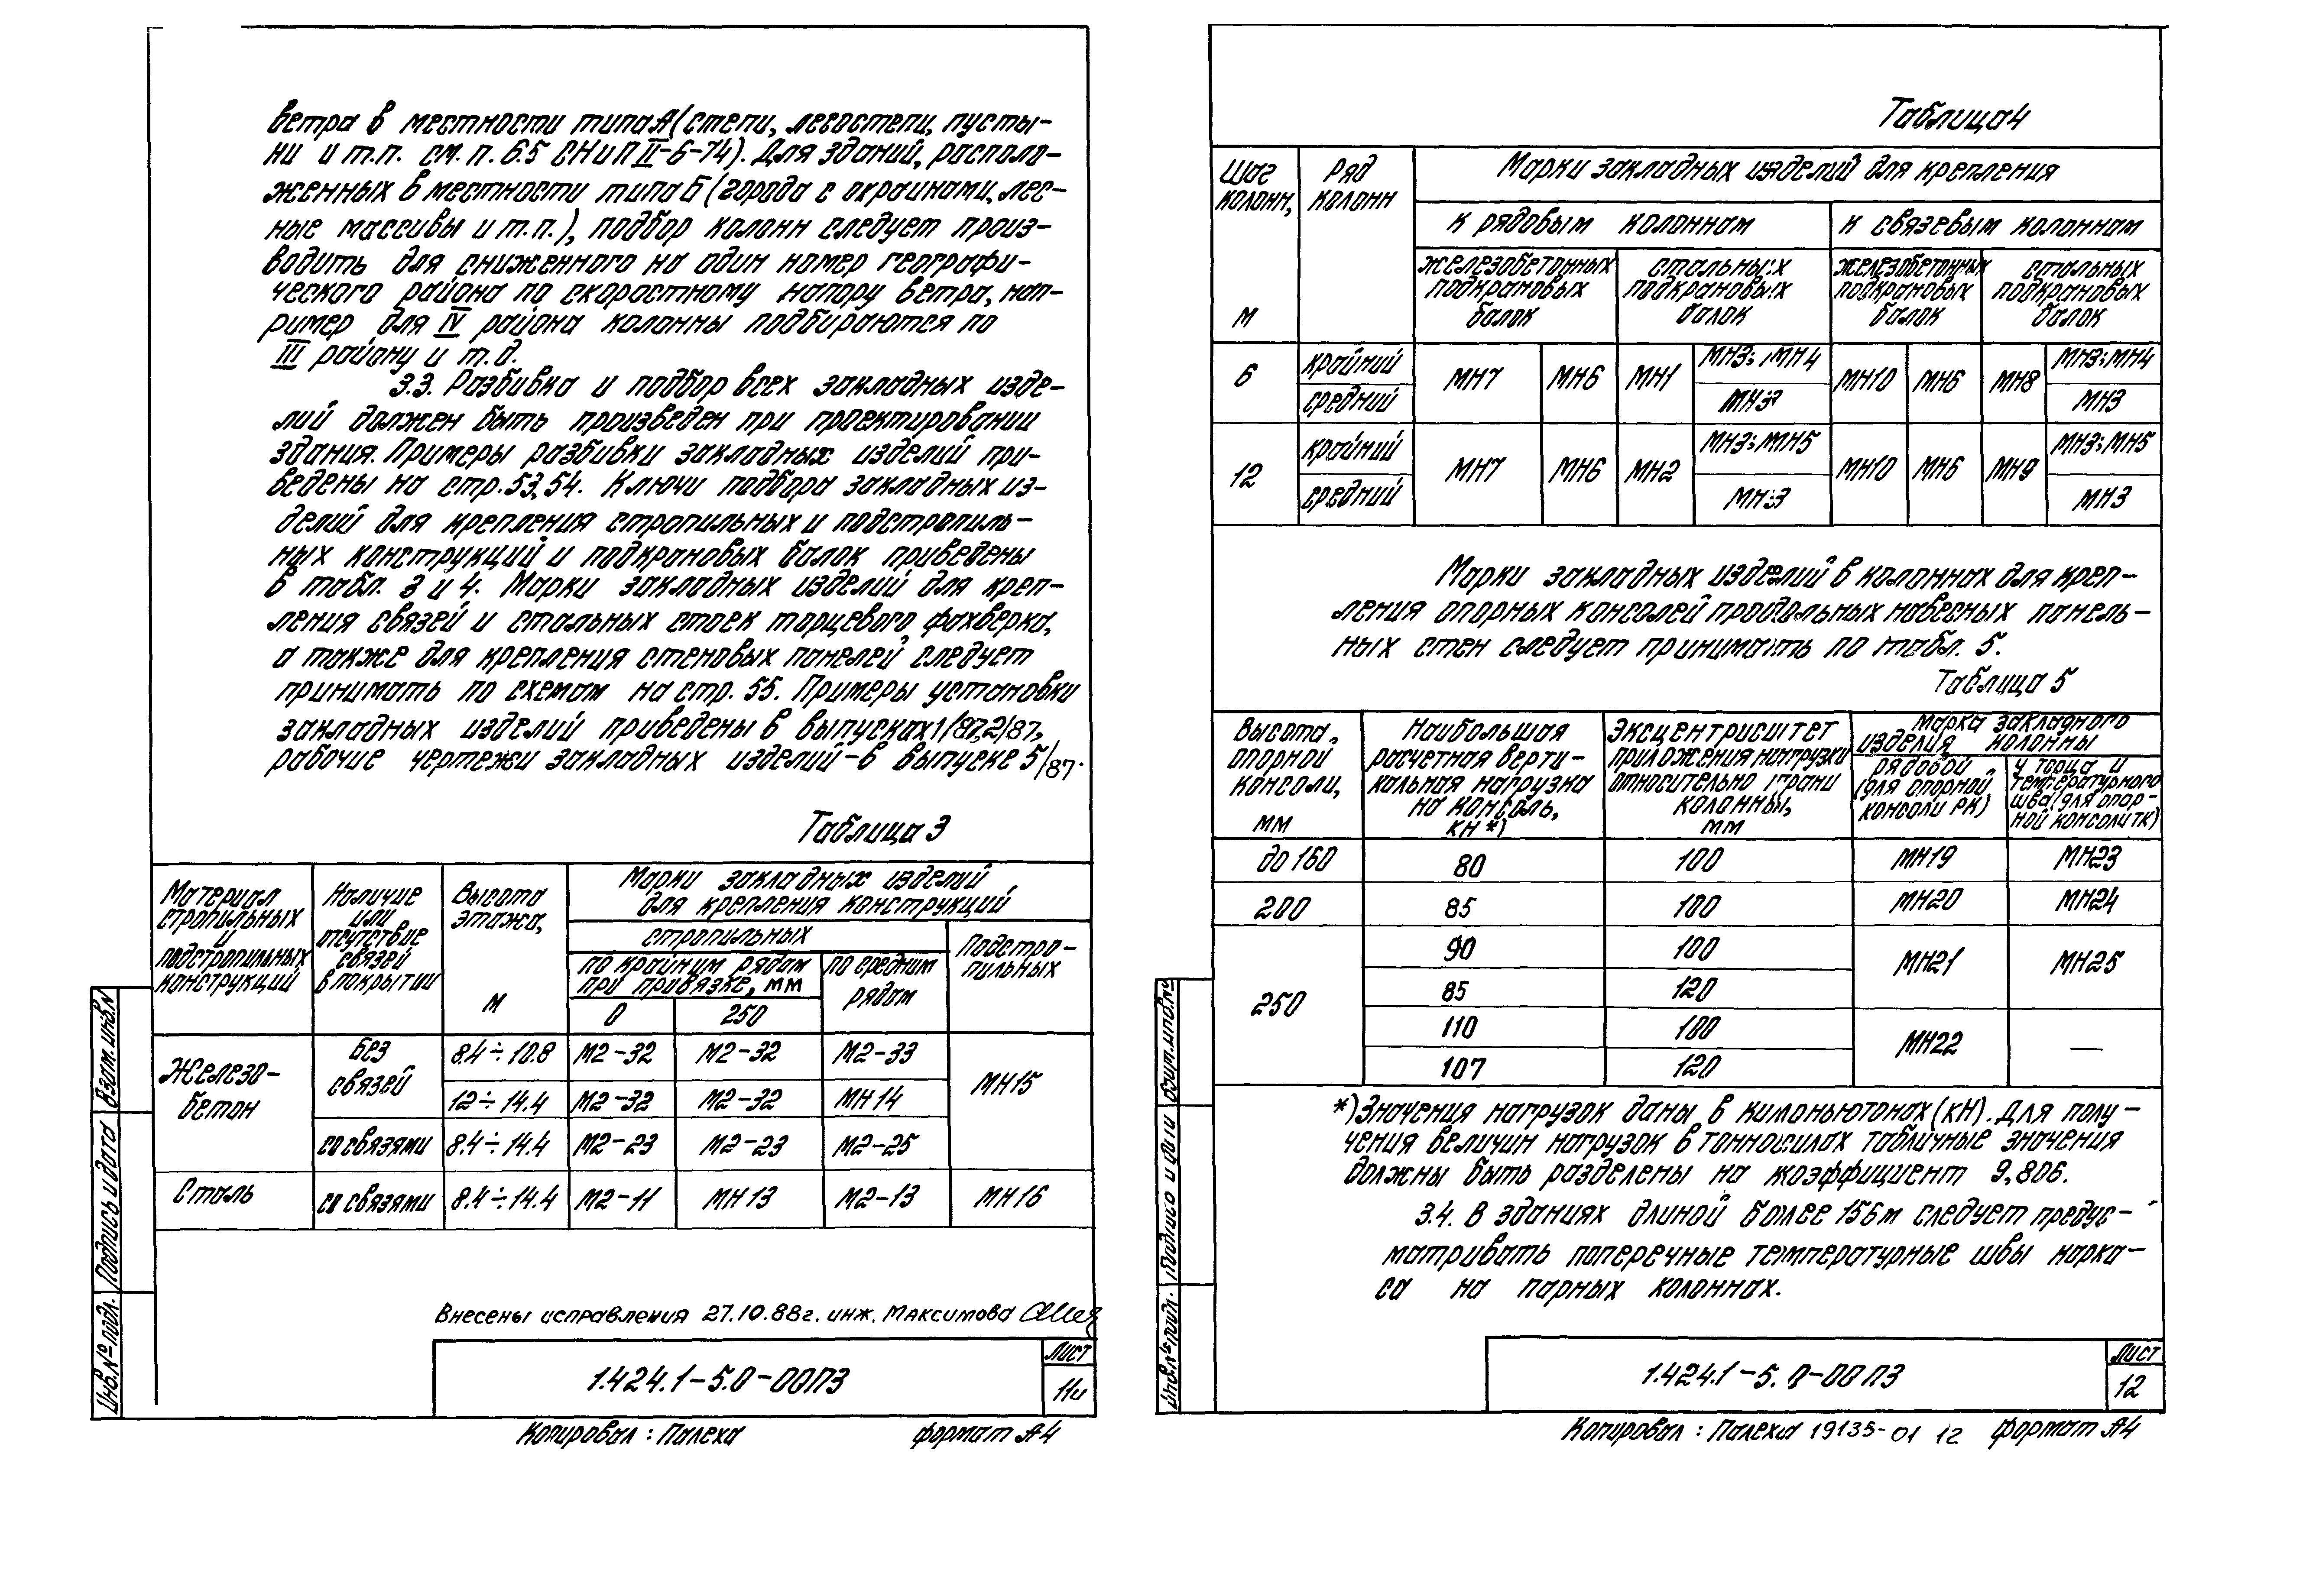 ветра в местности типа А (степи, лесостепи, пусты-
ни и т.п. см. п. 6.5 СНиП II-6-74). Для зданий, располо-
женных в местности типа Б (города с окраинами, лес-
ные массивы и т.п.), подбор колонн следует произ-
водить для сниженного на один номер географи-
ческого района по скоростному напору ветра, нап-
ример для IV района колонны подбираются по
III району и т.д.
3.3. Разбивка и подбор всех закладных изде-
лий должен быть произведен при проектировании
здания. Примеры разбивки закладных изделий при-
ведены на стр. 53, 54. Ключи подбора закладных из-
делий для крепления стропильных и подстропиль-
ных конструкций и подкрановых балок приведены
в табл. 3 и 4. Марки закладных изделий для креп-
ления связей и стальных стоек торцевого фахверка,
а также для крепления стеновых панелей следует
принимать по схемам на стр. 55. Примеры установки
закладных изделий приведены в выпусках 1/87, 2/87,
рабочие чертежи закладных изделий - в выпуске 5/87.
Таблица 3
Материал
стропильных
и
подстропильных
конструкций
Наличие
или
отсутствие
связей
в покрытии
Высота
этажа,
м
Марки закладных изделий
для крепления конструкций
стропильных
Подстро-
пильных
по крайним рядам
при привязке, мм
по средним
рядам
0 250
Железо-
бетон
Без
связей
8.4÷10.8 М2-32 М2-32 М2-33
МН15
12÷14.4 М2-32 М2-32 МН14
со связями 8.4÷14.4 М2-23 М2-23 М2-25
Сталь со связями 8.4÷14.4 М2-11 МН13 М2-13 МН16
Внесены исправления 27.10.88г. инж. Максимова
1.424.1-5.0-00ПЗ
Лист
11и
Копировал: Палеха формат А4
Взам. инв. N
Подпись и дата
Инв. № подл.
Таблица 4
Шаг
колонн,
м
Ряд
колонн
Марки закладных изделий для крепления
к рядовым колоннам
к связевым колоннам
железобетонных
подкрановых
балок
стальных
подкрановых
балок
железобетонных
подкрановых
балок
стальных
подкрановых
балок
6 крайний МН7 МН6 МН1 МН3; МН4 МН10 МН6 МН8 МН3; МН4
средний МН3 МН3
12 крайний МН7 МН6 МН2 МН3; МН5 МН10 МН6 МН9 МН3; МН5
средний МН3 МН3
Марки закладных изделий в колоннах для креп-
ления опорных консолей продольных навесных панель-
ных стен следует принимать по табл. 5.
Таблица 5
Высота
опорной
консоли,
мм
Наибольшая
расчетная верти-
кальная нагрузка
на консоль,
кН *)
Эксцентриситет
приложения нагрузки
относительно грани
колонны,
мм
Марка закладного
изделия колонны
рядовой
(для опорной
консоли РК)
у торца и
температурного
шва (для опор-
ной консоли ТК)
до 160 80 100 МН19 МН23
200 85 100 МН20 МН24
250 90 100 МН21 МН25
85 120
110 100 МН22 —
107 120
*) Значения нагрузок даны в килоньютонах (кН). Для полу-
чения величин нагрузок в тонносилах табличные значения
должны быть разделены на коэффициент 9,806.
3.4. В зданиях длиной более 156м следует предус-
матривать поперечные температурные швы карка-
са на парных колоннах.
1.424.1-5.0-00ПЗ
Лист
12
Копировал: Палеха 19135-01 12 формат А4
Инв. № подл.